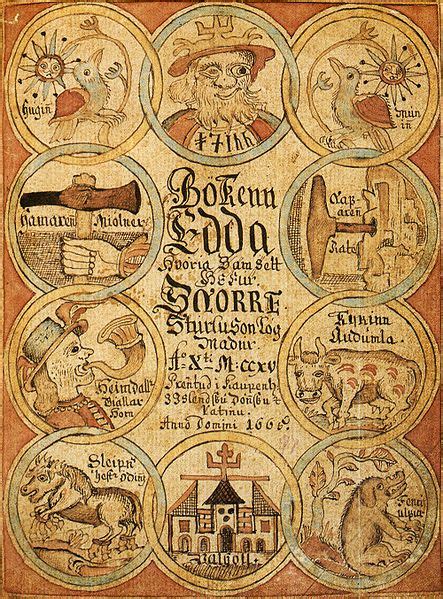 Hugin
Mun
in
Bokenn
Edda
Hvoria Samsett
Hefur
Snorre
Sturluson Log
madur
Ao Xti M.CCXV
Prentud i Kaupenh
J Islendsku Dönsku &
Latinu.
Anno Domini 1665
Hamaren Miolner
Naf
aren
Rate
Heimdall
Giallar
Horn
Kyrinn
Audumla.
Sleipn
hestr Odins
Valholl.
Fenris
ulfur